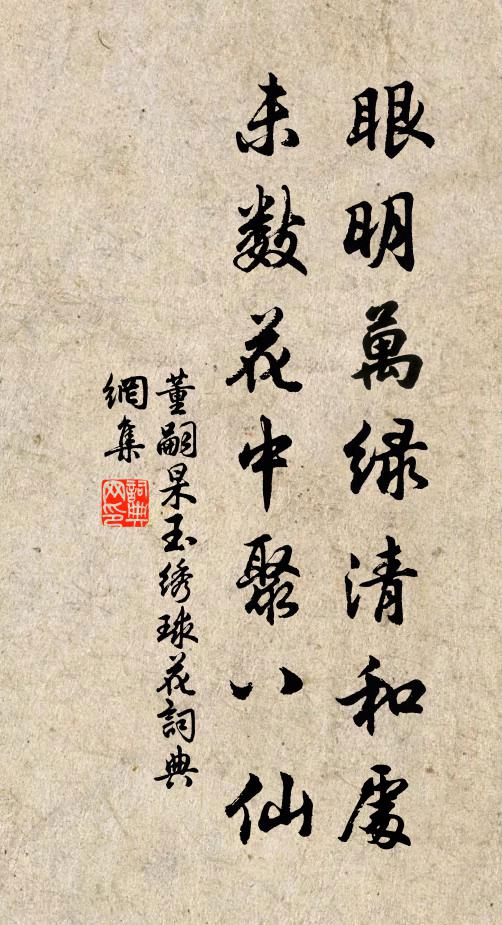 眼明萬緑清和處
未數花中聚八仙
董嗣杲玉绣球花詞典
網集
詞典
网印